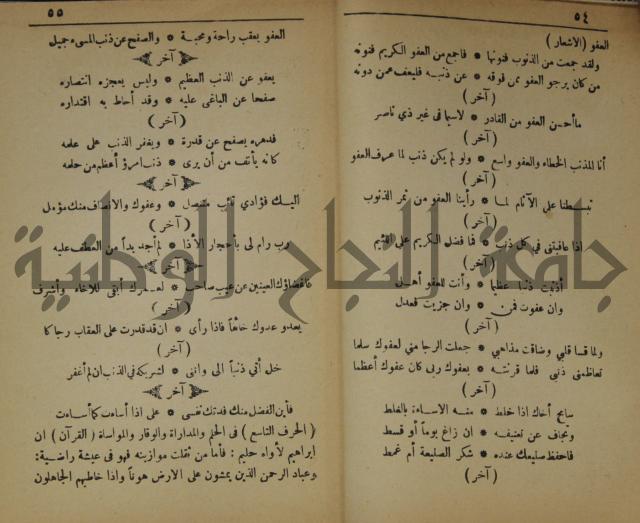 ٥٤
العفو (الاشعار)
ولقد جمعت من الذنوب فنونها * فاجمع من العفو الكريم فنونه
من كان يرجو العفو ممن فوقه * عن ذنبه فليعف عمن دونه
(آخر)
ما أحسن العفو من القادر * لاسيما في غير ذي ناصر
(آخر)
أنا المذنب الخطاء والعفو واسع * ولو لم يكن ذنب لما عرف العفو
(آخر)
تبسطنا على الآثام لما * رأينا العفو من ثمر الذنوب
(آخر)
اذا عاقبتني في كل ذنب * فما فضل الكريم على اللئيم
(آخر)
أذنبت ذنبا عظيما * وأنت للعفو أهل
وان عفوت فمن * وان جزيت فعدل
(آخر)
ولما قسا قلبي وضاقت مذاهبي * جعلت الرجا مني لعفوك سلما
تعاظمني ذنبي فلما قرنته * بعفوك ربى كان عفوك أعظما
(آخر)
سامح أخاك اذا خلط * منه الاساءة بالغلط
وتجاف عن تعنيفه * ان زاغ يوماً أو قسط
فاحفظ صنيعك عنده * شكر الصنيعة أم غمط
(آخر)
٥٥
العفو يعقب راحة ومحبة * والصفح عن ذنب المسىء جميل
آخر
يعفو عن الذنب العظيم * وليس يعجزه انتصاره
صفحا عن الباغي عليه * وقد أحاط به اقتداره
(آخر)
فدهره يصفح عن قدرة * ويغفر الذنب على علمه
كأنه يأنف من أن يرى * ذنب امرؤ أعظم من حلمه
آخر
اليك فؤادي تائب متنصل * وعفوك والانصاف منك مؤمل
(آخر)
رب رام لى بأحجار الأذا * لم أجد بداً من العطف عليه
آخر
العينين عن عيب صاحب * لعمرك أبقى للاخاء وأشرف
(آخر)
يعدو عدوك خائفاً فاذا رأى * ان قد قدرت على العقاب رجاكا
(آخر)
أتي ذنباً الى وانني * لشريكه في الذنب ان لم أغفر
آخر
فأين الفضل منك فدتك نفسى * على اذا أسأت كما أسأت
(الحرف التاسع) فى الحلم والمداراة والوقار والمواساة (القرآن) ان
ابراهيم لأواه حليم: فأما من ثقلت موازينه فهو فى عيشة راضية:
وعباد الرحمن الذين يمشون على الارض هوناً واذا خاطبهم الجاهلون
جامعة النجاح الوطنية